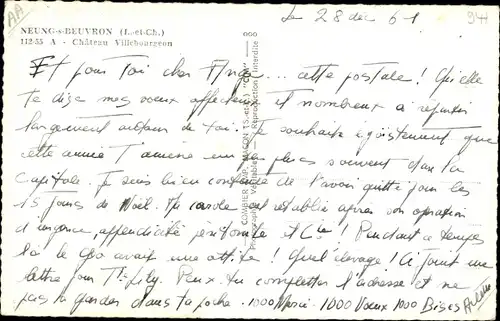 AA
Le 28 dec 61
94H
NEUNG-s-BEUVRON (L.-et-Ch.)
112-55 A - Château Villebourgeon
COMBIER IMP. MACON (S.-et-L.) "CIM"
Photographie Véritable - Reproduction Interdite
Et pour toi cher Ange... cette postale ! Qu'elle
te dise mes voeux affectueux et nombreux à répartir
largement autour de toi. Je souhaite égoïstement que
cette année t'amène un peu plus souvent dans la
Capitale. Je suis bien contente de l'avoir quitté pour les
15 jours de Noël. Ta carole est rétablie après son opération
d'urgence, appendicite péritonite etc ! Pendant ce temps
là le Geo avait une otite ! Quel élevage ! Ci joint une
lettre pour Tt Lily. Peux tu compléter l'adresse et ne
pas la garder dans ta poche. 1000 Merci. 1000 Voeux 1000 Bises